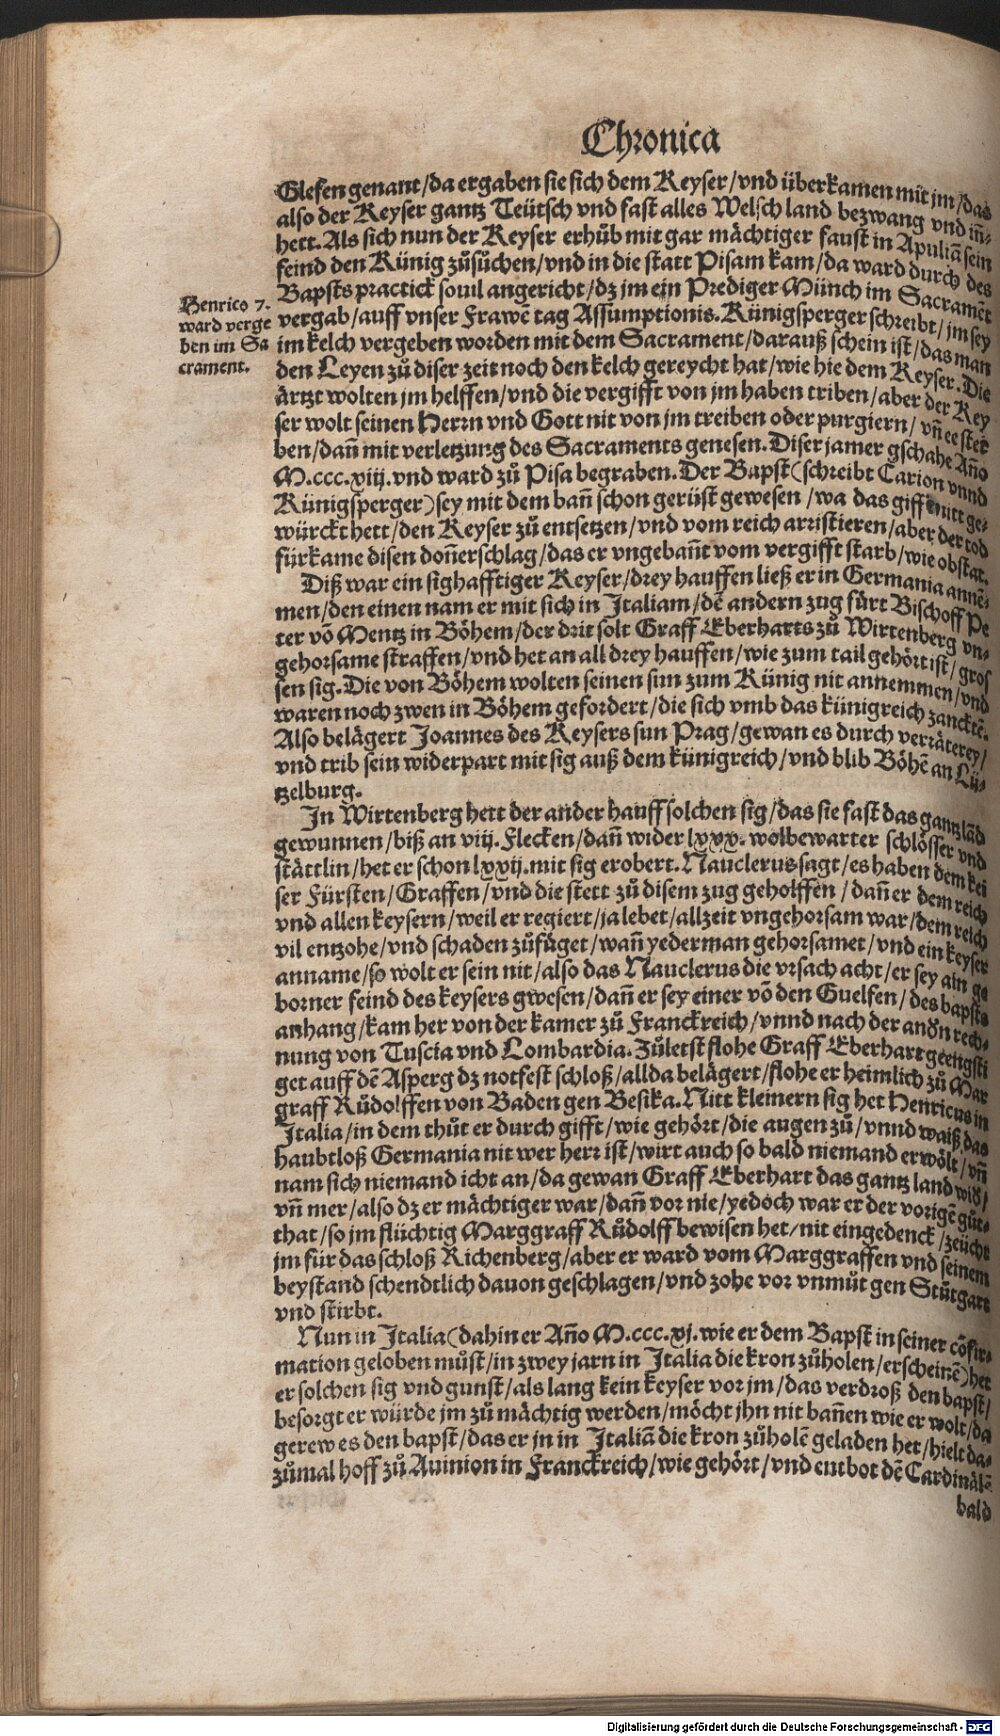 Chronica
Glefen genant/da ergaben sie sich dem Keyser/vnd überkamen mit jm/das
also der Keyser gantz Teütsch vnd fast alles Welsch land bezwang vnd iñ-
hett. Als sich nun der Keyser erhůb mit gar mächtiger faust in Apuliā sein
feind den Künig zůsůchen/vnd in die statt Pisam kam/da ward durch des
Bapsts practick souil angericht/dz jm ein Prediger Münch im Sacramēt
vergab/auff vnser Frawē tag Assumptionis. Künigsperger schreibt/jm sey
im kelch vergeben worden mit dem Sacrament/darauß schein ist/das man
den Leyen zů diser zeit noch den kelch gereycht hat/wie hie dem Keyser. Die
ärtzt wolten jm helffen/vnd die vergifft von jm haben triben/aber der Key
ser wolt seinen Herrn vnd Gott nit von jm treiben oder purgiern/vñ ee ster
ben/dañ mit verletzung des Sacraments genesen. Diser jamer gschahe Año
M.ccc.xiij. vnd ward zů Pisa begraben. Der Bapst (schreibt Carion vnnd
Künigsperger) sey mit dem bañ schon gerüst gewesen/wa das gifft nitt ge-
würckt hett/den Keyser zů entsetzen/vnd vom reich arristieren/aber der tod
fürkame disen doñerschlag/das er vngebañt vom vergifft starb/wie obstat.
Diß war ein sighafftiger Keyser/drey hauffen ließ er in Germania annē-
men/den einen nam er mit sich in Italiam/dē andern zug fürt Bischoff Pe
ter vō Mentz in Böhem/der drit solt Graff Eberharts zů Wirtenberg vn-
gehorsame straffen/vnd het an all drey hauffen/wie zum tail gehört ist/gros
sen sig. Die von Böhem wolten seinen sun zum Künig nit annemmen/vnd
waren noch zwen in Böhem gefordert/die sich vmb das künigreich zancktē.
Also belägert Joannes des Keysers sun Prag/gewan es durch verräterey/
vnd trib sein widerpart mit sig auß dem künigreich/vnd blib Böhē an Lü-
tzelburg.
In Wirtenberg hett der ander hauff solchen sig/das sie fast das gantz lād
gewunnen/biß an viij. Flecken/dañ wider lxxx. wolbewarter schlösser vnd
stättlin/het er schon lxxij. mit sig erobert. Nauclerus sagt/es haben dem kei
ser Fürsten/Graffen/vnd die stett zů disem zug geholffen/dañ er dem reich
vnd allen keysern/weil er regiert/ja lebet/allzeit vngehorsam war/dem reich
vil entzohe/vnd schaden zůfüget/wañ yederman gehorsamet/vnd ein keyser
anname/so wolt er sein nit/also das Nauclerus die vrsach acht/er sey ain ge
borner feind des keysers gwesen/dañ er sey einer vō den Guelfen/des bapsts
anhang/kam her von der kamer zů Franckreich/vnnd nach der andn rech-
nung von Tuscia vnd Lombardia. Zůletst flohe Graff Eberhart geengsti
get auff dē Asperg dz notfest schloß/allda belägert/flohe er heimlich zů Mar
graff Růdolffen von Baden gen Besika. Nitt kleinern sig het Henricus in
Italia/in dem thůt er durch gifft/wie gehört/die augen zů/vnnd waiß das
haubtloß Germania nit wer herr ist/wirt auch so bald niemand erwölt/vñ
nam sich niemand icht an/da gewan Graff Eberhart das gantz land wid/
vñ mer/also dz er mächtiger war/dañ vor nie/yedoch war er der vorigē gůt-
that/so jm flüchtig Marggraff Růdolff bewisen het/nit eingedenck/zeücht
jm für das schloß Richenberg/aber er ward vom Marggraffen vnd seinem
beystand schendtlich dauon geschlagen/vnd zohe vor vnmůt gen Stůtgart
vnd stirbt.
Nun in Italia (dahin er Año M.ccc.xj. wie er dem Bapst in seiner cōfir-
mation geloben můst/in zwey jarn in Italia die kron zůholen/erscheinē) het
er solchen sig vnd gunst/als lang kein keyser vor jm/das verdroß den bapst/
besorgt er würde jm zů mächtig werden/möcht jhn nit bañen wie er wolt/da
gerew es den bapst/das er jn in Italiā die kron zůholē geladen het/hielt da-
zůmal hoff zů Auinion in Franckreich/wie gehört/vnd embot dē Cardinālē
bald
Henrico 7.
ward verge
ben im Sa
crament.
Digitalisierung gefördert durch die Deutsche Forschungsgemeinschaft - DFG